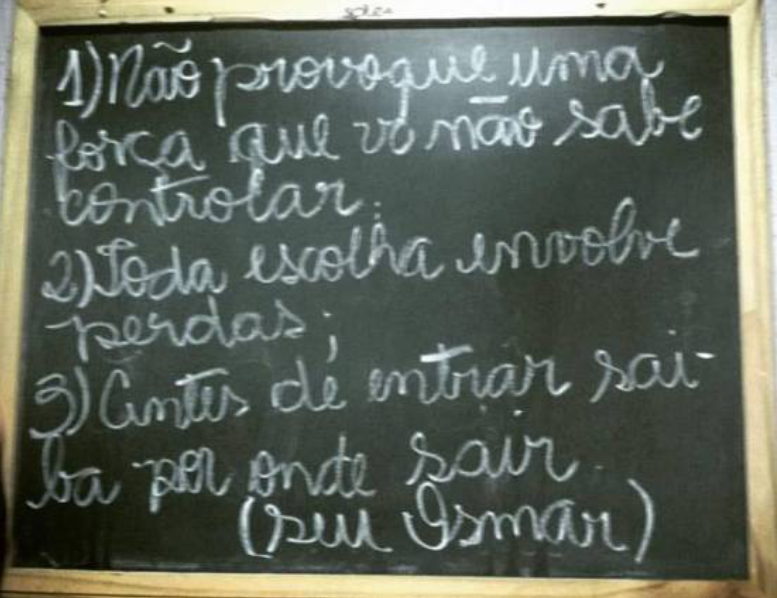 1) Não provoque uma
força que vc não sabe
controlar.
2) Toda escolha envolve
perdas;
3) Antes de entrar sai-
ba por onde sair.
(seu Osmar)